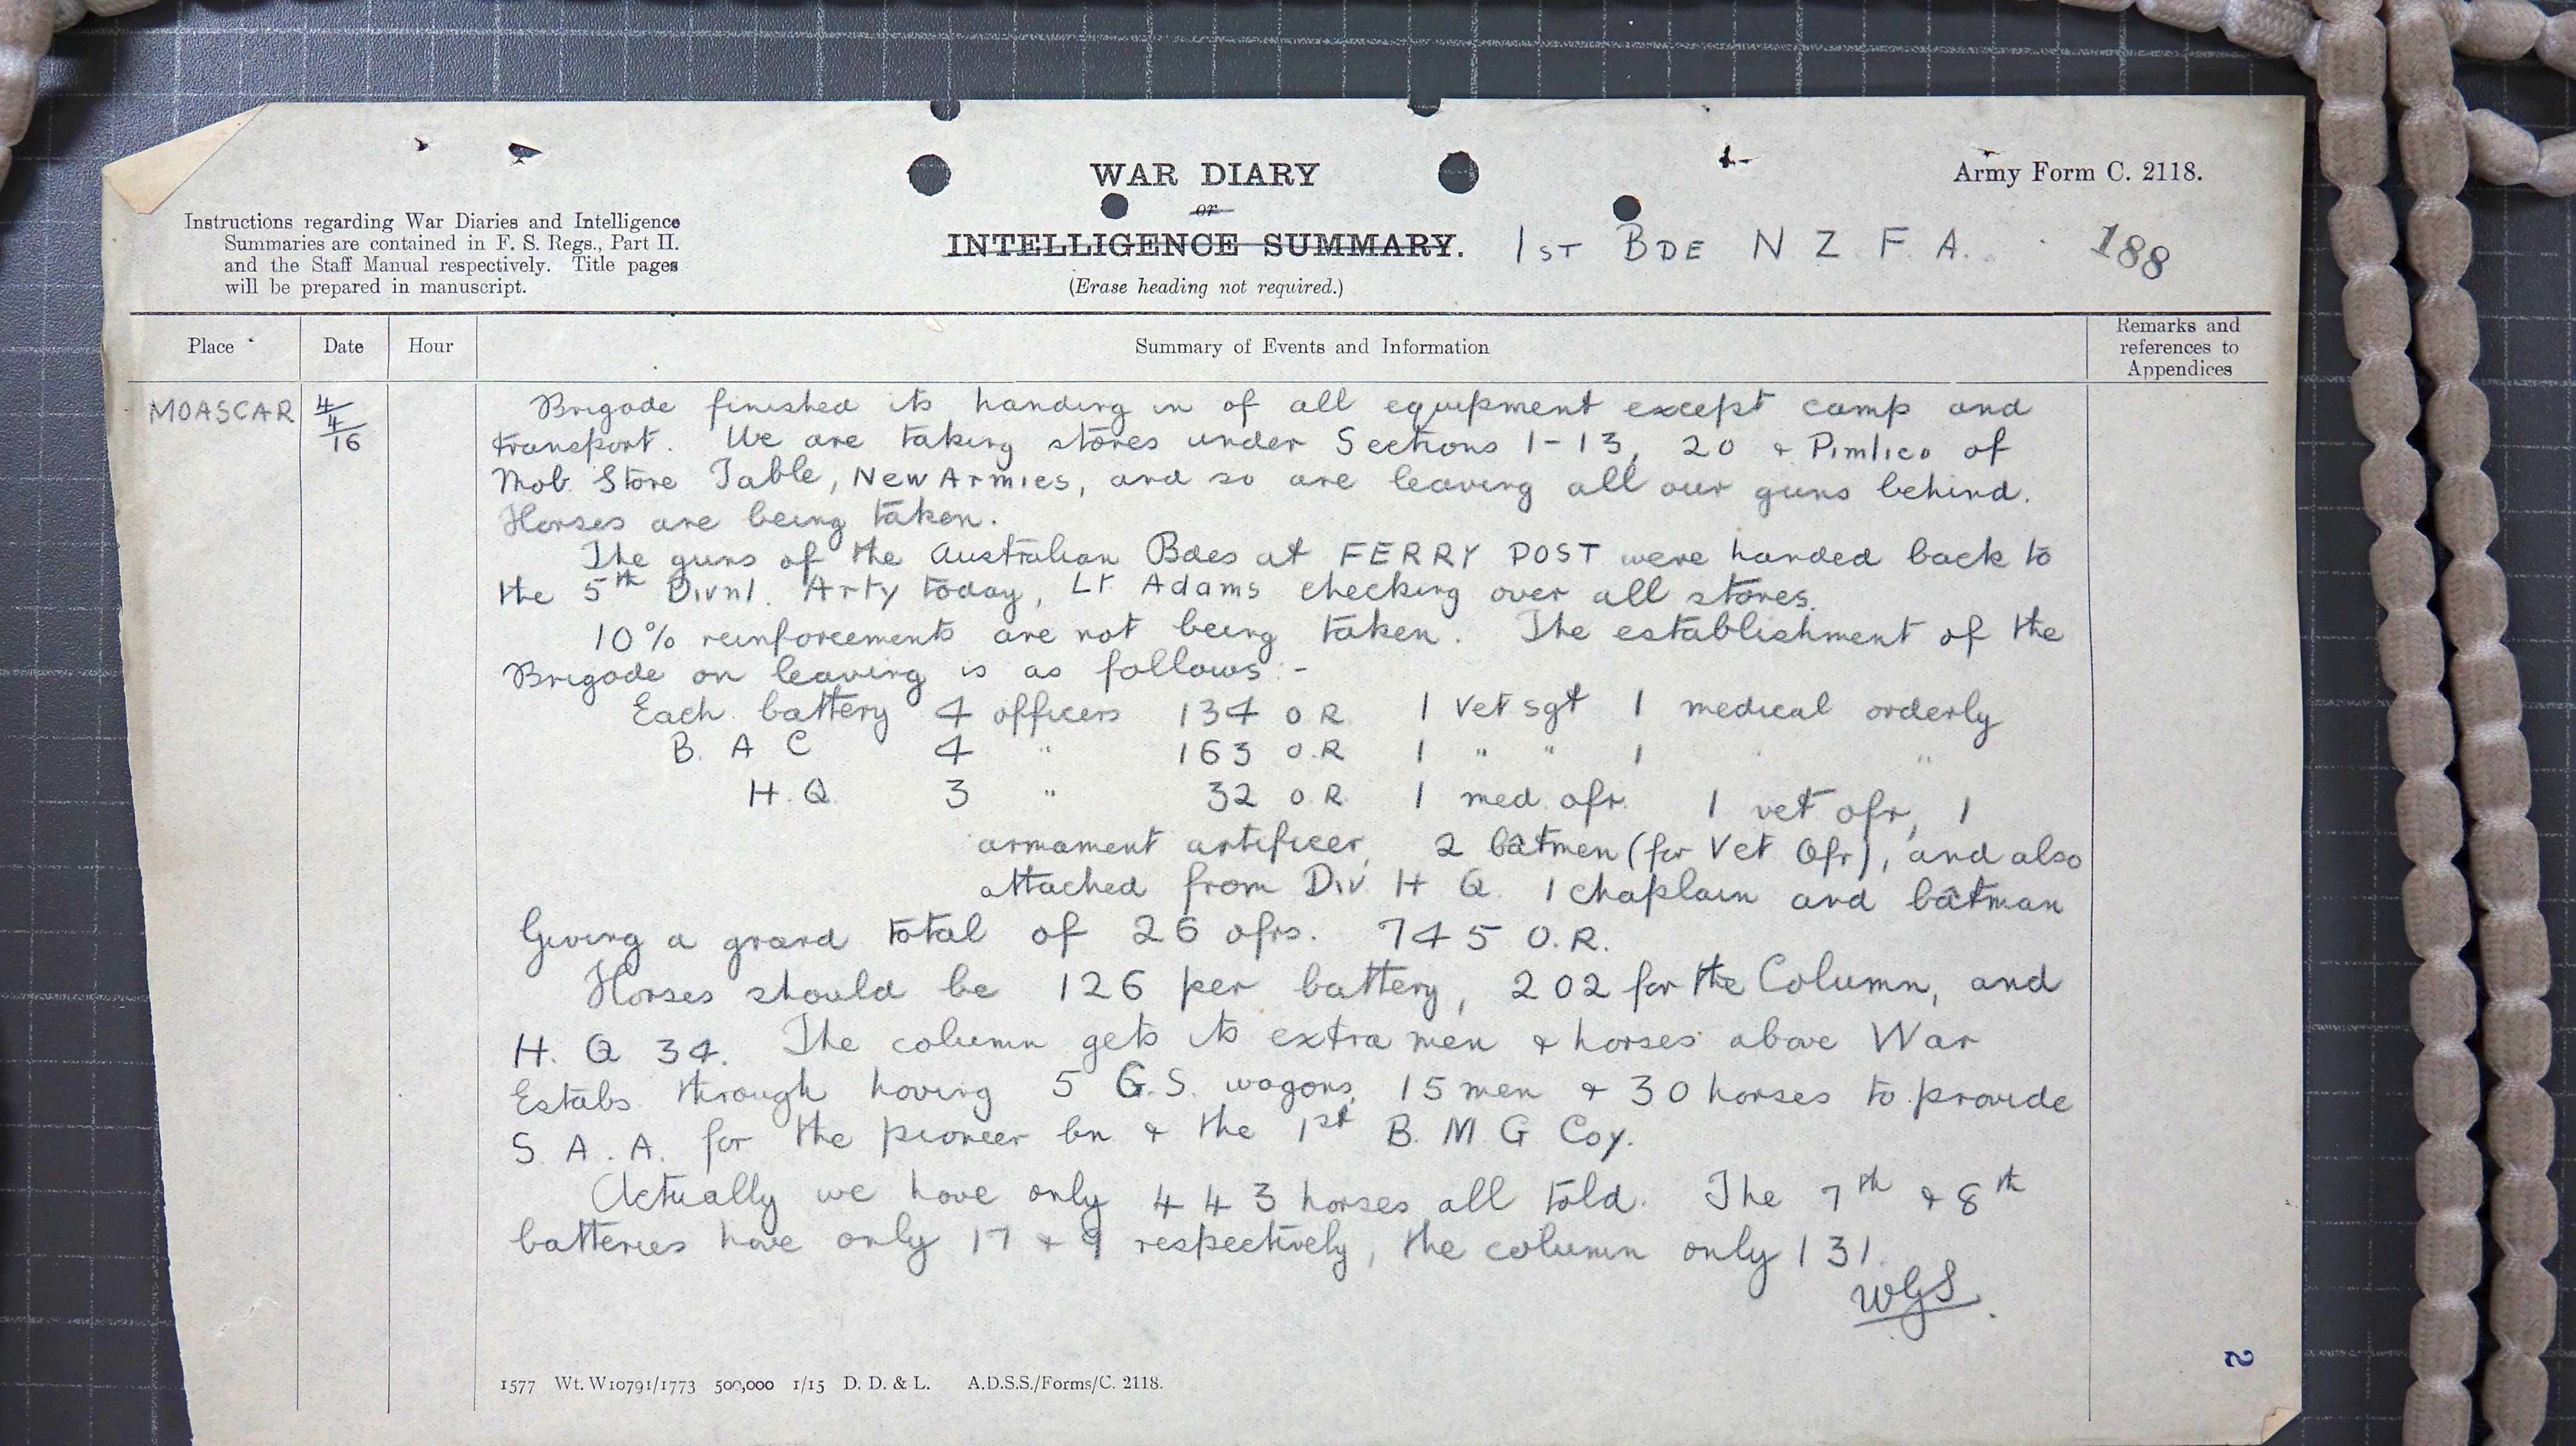 WAR DIARY
or
INTELLIGENCE SUMMARY.
(Erase heading not required.)
Army Form C. 2118.
Instructions regarding War Diaries and Intelligence
Summaries are contained in F. S. Regs., Part II.
and the Staff Manual respectively. Title pages
will be prepared in manuscript.
1ST BDE N Z F A.
188
Place
Date
Hour
Summary of Events and Information
Remarks and
references to
Appendices
MOASCAR
4/4/16
Brigade finished its handing in of all equipment except camp and
transport. We are taking stores under Sections 1-13, 20 & Pimlico of
Mob. Store Table, New Armies, and so are leaving all our guns behind.
Horses are being taken.
The guns of the Australian Bdes at FERRY POST were handed back to
the 5th Divnl. Arty today, Lt. Adams checking over all stores.
10% reinforcements are not being taken. The establishment of the
Brigade on leaving is as follows :-
Each battery 4 officers 134 O R 1 Vet sgt 1 medical orderly
B. A C 4 " 163 O.R 1 " " 1 "
H. Q 3 " 32 O.R. 1 med. ofr. 1 vet ofr, 1
armament artificer, 2 batmen (for Vet Ofr), and also
attached from Div H Q. 1 chaplain and batman
Giving a grand total of 26 ofrs. 745 O.R.
Horses should be 126 per battery, 202 for the Column, and
H. Q 34. The column gets its extra men & horses above War
Estabs through having 5 G.S. wagons, 15 men & 30 horses to provide
S. A. A. for the pioneer bn & the 1st B. M. G Coy.
Actually we have only 443 horses all told. The 7th & 8th
batteries have only 17 & 9 respectively, the column only 131.
WGS
1577 Wt. W10791/1773 500,000 1/15 D. D. & L. A.D.S.S./Forms/C. 2118.
2